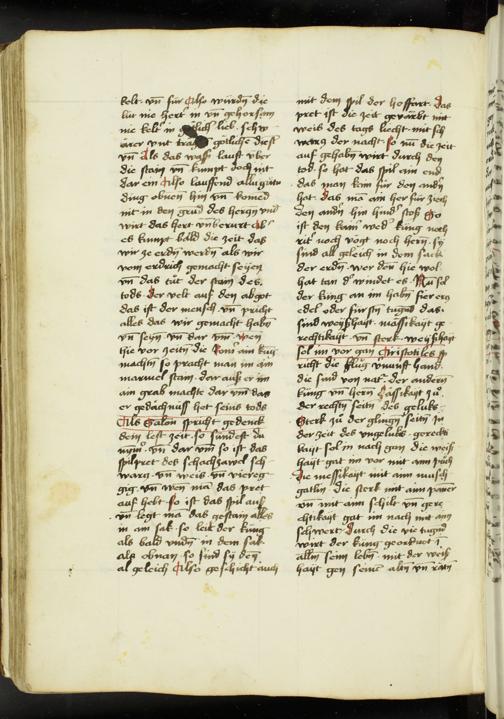 kelt · vn̄ für Also würdn̄ die
lüt nie hert in vn̄ gehorsam
nie kelt in götlich lieb · schw
arer vnt götliche diest
vn̄ Als das wass lauft vber
die stain vn̄ kumpt doch nit
dar ein Also laussend
ding obnen hin vn̄ komed
nit in den grūd des herczn vnd
wirt das hert vnberürt Als
es kumpt bald die zeit das
wir ze erdn̄ werdn̄ als wir
vom erdrich gemacht seyen
vn̄ das tüt der stain des
tods · der velt auf den abgot
das ist der mensch vn̄ pricht
alles das wir gemacht habn̄
vn̄ seyn vn̄ dar vm̄ wen
the vor zeitn̄ die Romani am küng
machtn̄ so pracht man im ain
marmel stain · dar auß er im
am grab machte dar vm̄ das
er gedächnüss het seins tods
Als Salon spricht gedenck
dein lest zeit · so sündest du
nym̄ · vn̄ dar vm̄ so ist das
spilpret des schachzawel sch
warcz · vn̄ weis vn̄ viereg
gig · vn̄ wen mā das pret
auf hebt · so ist das spil aus
vn̄ legt mā das gestain alles
in ain sak · so leit der küng
als bald vndn̄ in dem sak
als obnan · so sind sy den̄
al geleich Also geschicht auch
mit dem spil der hoffart · das
pret ist die zeit geuarbt mit
weis des tags liecht · mit sch
wercz der nacht · so nū die zeit
auf gehabn̄ wirt durch den
tod · so hat das spil ain end
das man kōm für den andn̄
hat · das mā ain her für zoch
den andn̄ hin hind stoß So
ist den kain wed küng noch
rit noch vogt noch hern · sy
sind all geleich in dem sack
der erdn̄ · wer den hie wol
hat tan d' windet es · Nu sol
der küng an im habn̄ fier ercz
edel oder fürstn̄ tugnd das ·
sind weyßhayt · mässikayt · ge
rechtikayt · vn̄ sterk · weyßhayt
sol im vor gan Aristotiles sp
richt die klūg vnunft hand
die sind von nat' · der andern
küng vn̄ hern Mässikayt zů
der rechtn̄ seitn̄ des gelüks
Sterk zů der glingn̄ seitn̄ zu
der zeit des vngelüks · gerechti
kayt sol in nach gan die weiß
hayt gat im vor mit aim půch
die mässikayt mit aim
die sterk mit aim
vn̄ mit aim schilt · vn̄ gere
chtikayt gat im nach mit aim
schwert · durch die vie tugnd
wirt der küng geordnet i
alln̄ seim lebn̄ · mit der weiß
hayt gen seinē altn̄ vn̄